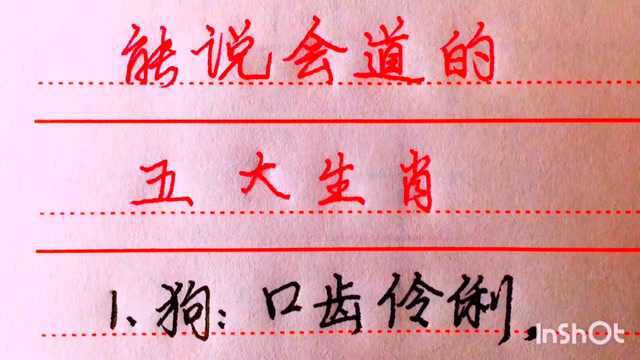 能说会道的
五大生肖
1、狗：口齿伶俐，
InShOt